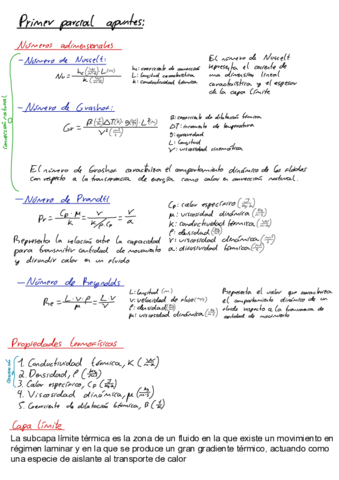 Primer parcial apuntes:
Números adimensionales
Convección natural
- Número de Nuselt:
Nu = h·L / K
h: coeficiente de convección
L: longitud característica
K: conductividad térmica
El número de Nuselt
representa el cociente de
una dimensión lineal
característica y el espesor
de la capa límite
- Número de Grashof:
Gr = β·ΔT·g·L³ / V²
β: coeficiente de dilatación térmica
ΔT: incremento de temperatura
g: gravedad
L: longitud
V: viscosidad cinemática
El número de Grashof caracteriza el comportamiento dinámico de los fluidos
con respecto a la transferencia de energía como calor en convección natural.
- Número de Prandtl
Pr = Cp·μ / K = V / = V / α
Cp: calor específico
μ: viscosidad dinámica
K: conductividad térmica
ρ: densidad
V: viscosidad cinemática
α: difusividad térmica
Representa la relación entre la capacidad
para transmitir cantidad de movimiento
y difundir calor en un fluido
- Número de Reynolds
Re = L·v·ρ / μ = L·v / V
L: longitud (m)
v: velocidad de
μ: viscosidad dinámica
Representa el valor que caracteriza
el comportamiento dinámico de un
fluido respecto a la transferencia de
cantidad de movimiento
Propiedades termofísicas
1. Conductividad térmica, K
2. Densidad, ρ
3. Calor específico, Cp
4. Viscosidad dinámica, μ
5. Coeficiente de dilatación térmica, β
Capa límite
La subcapa límite térmica es la zona de un fluido en la que existe un movimiento en
régimen laminar y en la que se produce un gran gradiente térmico, actuando como
una especie de aislante al transporte de calor